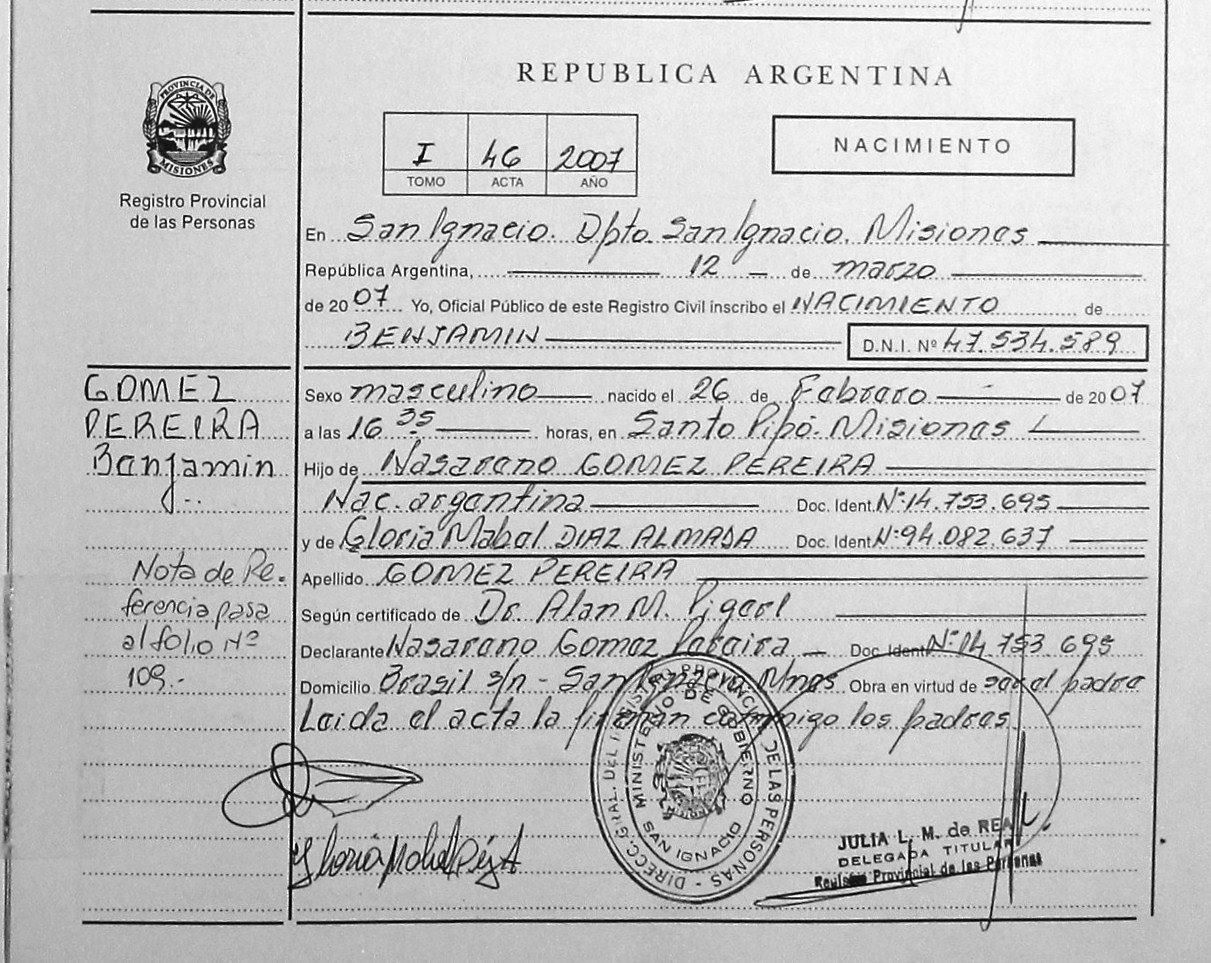 REPUBLICA ARGENTINA
PROVINCIA DE MISIONES
Registro Provincial
de las Personas
I 46 2007
TOMO ACTA AÑO
NACIMIENTO
En San Ignacio. Dpto. San Ignacio. Misiones
República Argentina, 12 de marzo
de 2007 Yo, Oficial Público de este Registro Civil inscribo el NACIMIENTO de
BENJAMIN D.N.I. Nº 47.534.589
GOMEZ
PEREIRA
Benjamin
Sexo masculino nacido el 26 de Febrero de 2007
a las 16 35 horas, en Santo Pipó. Misiones
Hijo de Nasareno GOMEZ PEREIRA
Nac. argentina Doc. Ident. Nº 14.753.695
y de Gloria Mabel DIAZ ALMADA Doc. Ident. Nº 94.082.637
Apellido GOMEZ PEREIRA
Según certificado de Dr. Alan M.
Declarante Nasareno Gomez Pereira Doc. Ident. Nº 14 753 695
Domicilio Brasil s/n - San Ignacio Mnes Obra en virtud de ser el padre
Leida el acta la firman conmigo los padres
Nota de Re.
ferencia pasa
al folio Nº
109.-
DIRECC. GRAL. DEL REGISTRO PROVINCIAL DE LAS PERSONAS
MINISTERIO DE GOBIERNO
SAN IGNACIO
JULIA L. M. de REA
DELEGADA TITULAR
Registro Provincial de las Personas